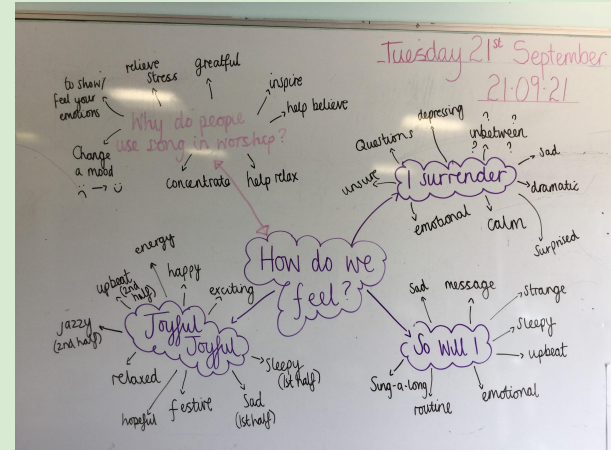 Tuesday 21st September
21.09.21
Why do people
use song in worship?
to show/
feel your
emotions
relieve
stress
greatful
inspire
help believe
help relax
concentrate
Change
a mood
How do we
feel?
I surrender
unsure
Questions
depressing
? ?
inbetween
? ?
sad
dramatic
surprised
calm
emotional
Joyful
Joyful
jazzy
(2nd half)
upbeat
(2nd
half)
energy
happy
exciting
sleepy
(1st half)
Sad
(1st half)
festive
hopeful
relaxed
So Will I
sad
message
strange
sleepy
upbeat
emotional
routine
Sing-a-long